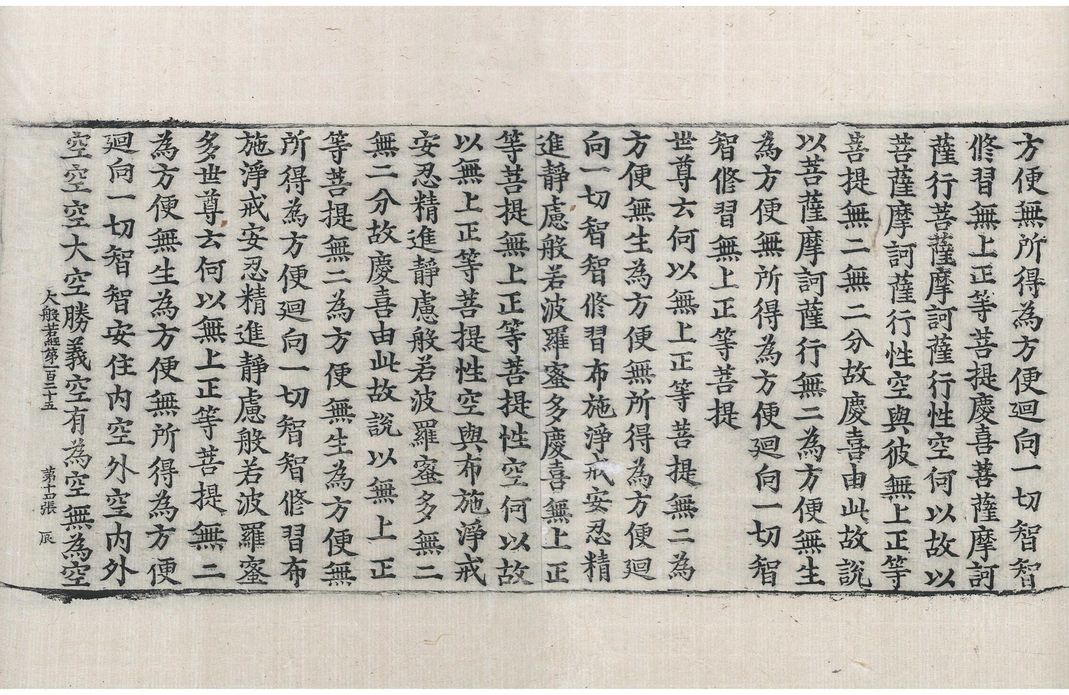 方便無所得為方便廻向一切智智
修習無上正等菩提慶喜菩薩摩訶
薩行菩薩摩訶薩行性空何以故以
菩薩摩訶薩行性空與彼無上正等
菩提無二無二分故慶喜由此故說
以菩薩摩訶薩行無二為方便無生
為方便無所得為方便廻向一切智
智修習無上正等菩提
世尊云何以無上正等菩提無二為
方便無生為方便無所得為方便廻
向一切智智修習布施淨戒安忍精
進靜慮般若波羅蜜多慶喜無上正
等菩提無上正等菩提性空何以故
以無上正等菩提性空與布施淨戒
安忍精進靜慮般若波羅蜜多無二
無二分故慶喜由此故說以無上正
等菩提無二為方便無生為方便無
所得為方便廻向一切智智修習布
施淨戒安忍精進靜慮般若波羅蜜
多世尊云何以無上正等菩提無二
為方便無生為方便無所得為方便
廻向一切智智安住內空外空內外
空空空大空勝義空有為空無為空
大般若經第一百二十五 第十四張 辰